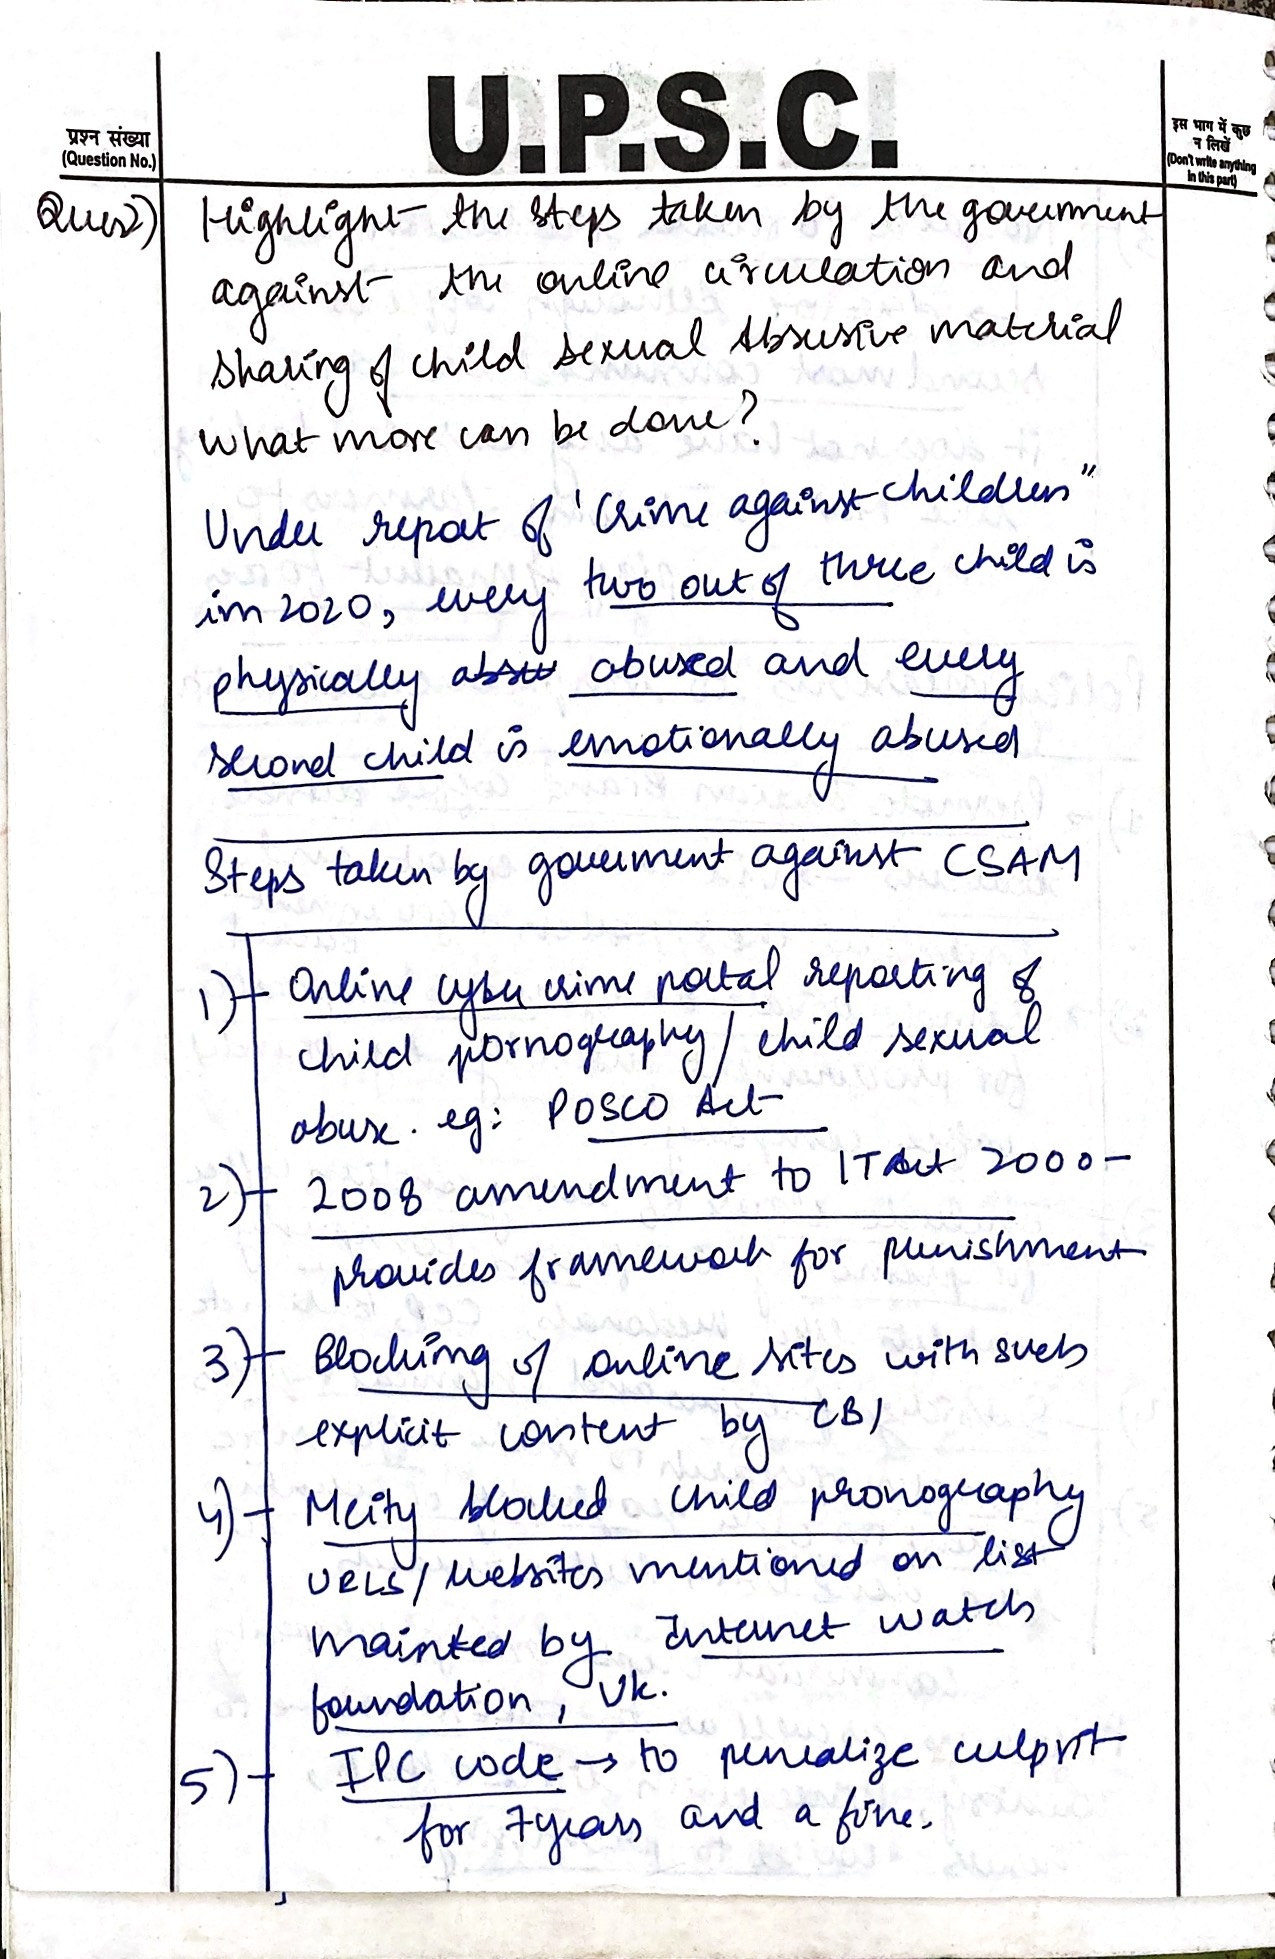 U.P.S.C.
प्रश्न संख्या
(Question No.)
इस भाग में कुछ
न लिखें
(Don't write anything
in this part)
Ques2) Highlight the steps taken by the government
against the online circulation and
sharing of child sexual Absusive material
What more can be done?
Under report of 'Crime against children"
in 2020, every two out of three child is
physically abused and every
second child is emotionally abused
Steps taken by government against CSAM
1) Online cyber crime portal reporting of
child pornography / child sexual
abuse. eg: POSCO Act
2) 2008 amendment to IT Act 2000-
provides framework for punishment
3) Blocking of online sites with such
explicit content by CBI
4) Meity blocked child pronography
URLS / websites mentioned on list
mainted by Internet watch
foundation, Uk.
5) IPC code → to penealize culprit
for 7years and a fine.